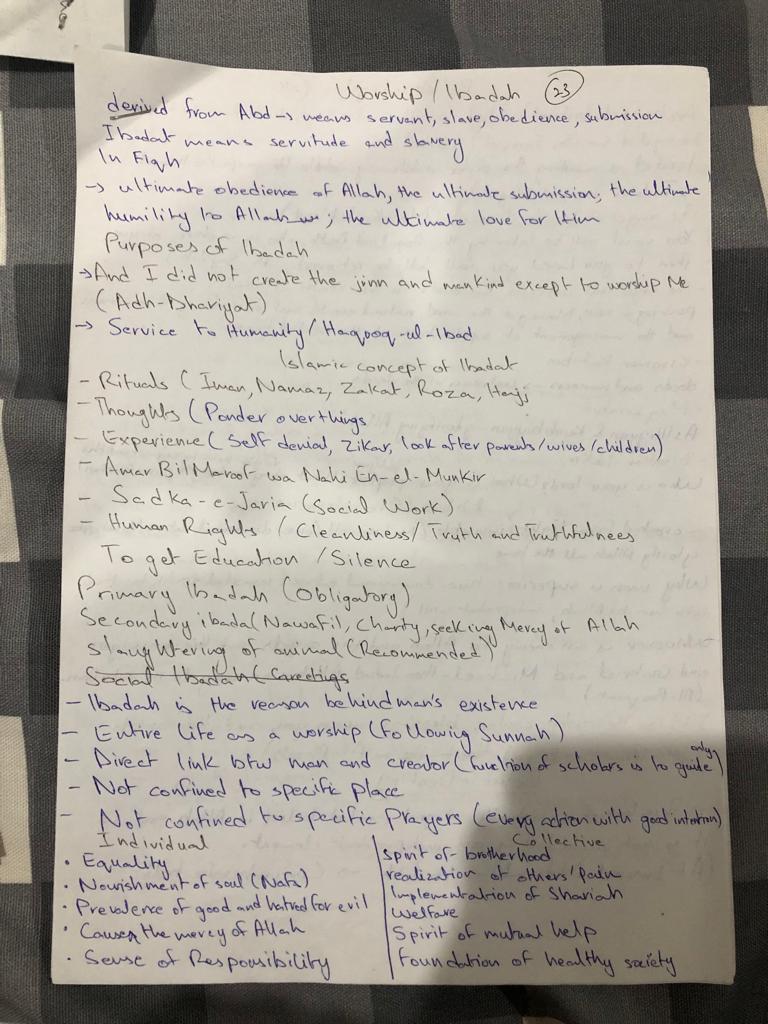 Worship / Ibadah 23
derived from Abd → means servant, slave, obedience, submission
Ibadat means servitude and slavery
In Fiqh
→ ultimate obedience of Allah, the ultimate submission; the ultimate
humility to Allah ; the ultimate love for Him
Purposes of Ibadah
→ And I did not create the jinn and mankind except to worship Me
(Adh-Dhariyat)
→ Service to Humanity / Haqooq-ul-Ibad
Islamic concept of Ibadat
- Rituals (Iman, Namaz, Zakat, Roza, Hajj
- Thoughts (Ponder over things
- Experience (Self denial, Zikar, look after parents/wives/children)
- Amar Bil Maroof wa Nahi En-el-Munkir
- Sadka-e-Jaria (Social Work)
- Human Rights / Cleanliness / Truth and Truthfulnees
To get Education / Silence
Primary Ibadah (Obligatory)
Secondary ibada (Nawafil, Charity, seeking Mercy of Allah
slaughtering of animal (Recommended)
Social Ibadah (Greetings
- Ibadah is the reason behind man's existence
- Entire life as a worship (Following Sunnah)
- Direct link btw man and creator (function of scholars is to guide only)
- Not confined to specific place
- Not confined to specific Prayers (every action with good intention)
Individual
• Equality
• Nourishment of soul (Nafs)
• Prevalence of good and hatred for evil
• Causes the mercy of Allah
• Sense of Responsibility
Collective
Spirit of brotherhood
realization of others' pain
Implementation of Shariah
Welfare
Spirit of mutual help
Foundation of healthy society